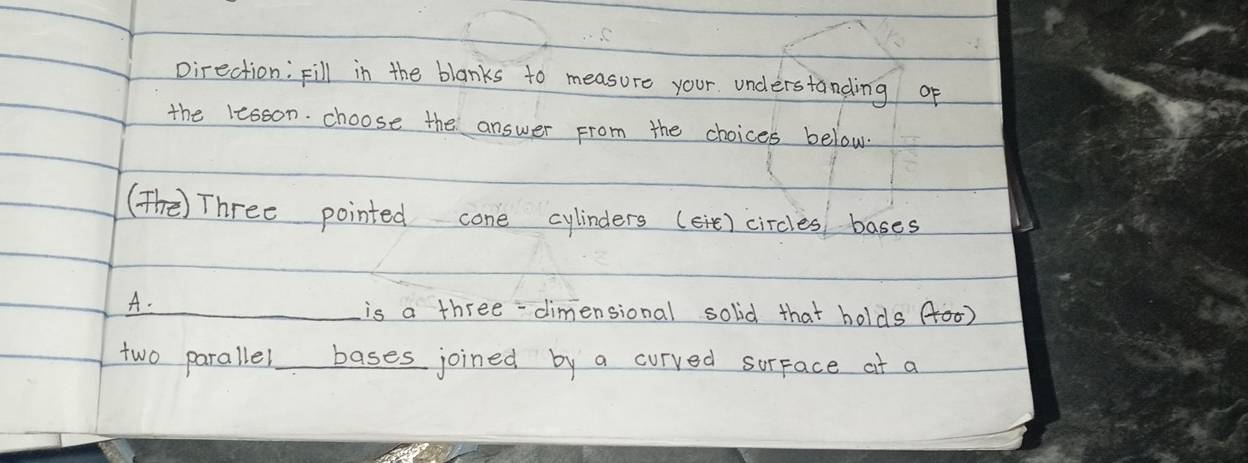 Direction: Fill in the blanks to measure your understanding of
the lesson. choose the answer from the choices below.
(The) Three pointed cone cylinders (cire) circles bases
A. ____________ is a three-dimensional solid that holds (too)
two parallel bases joined by a curved surface at a